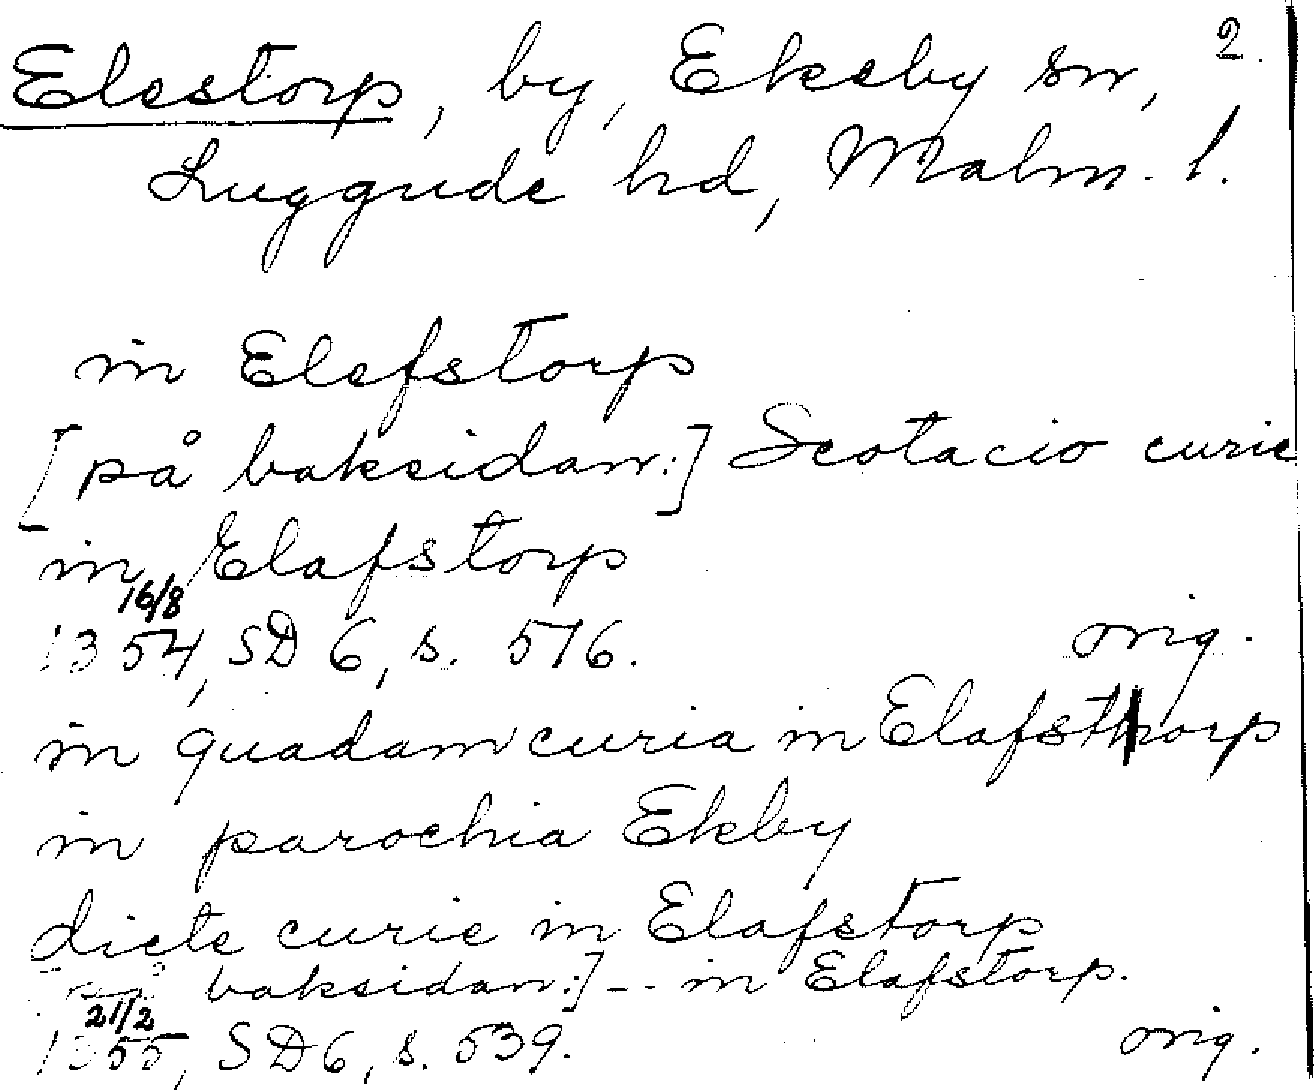 2.
Elestorp, by, Ekeby sn,
Luggude hd, Malm. l.
in Elefstorp
[på baksidan:] Scotacio curie
in Elafstorp
16/8
1354, SD 6, s. 516. orig.
in quadam curia in Elafsthorp
in parochia Ekby
dicte curie in Elafstorp
[på baksidan:] -- in Elafstorp.
21/2
1355, SD 6, s. 539. orig.